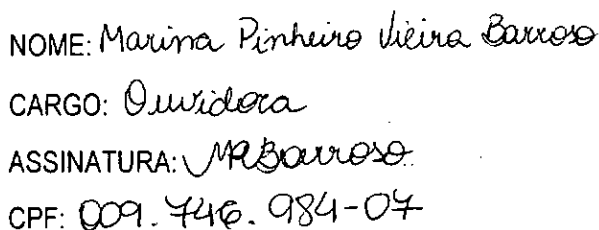 NOME: Marina Pinheiro Vieira Barroso
CARGO: Ouvidora
ASSINATURA: MPBarroso
CPF: 009.746.984-07